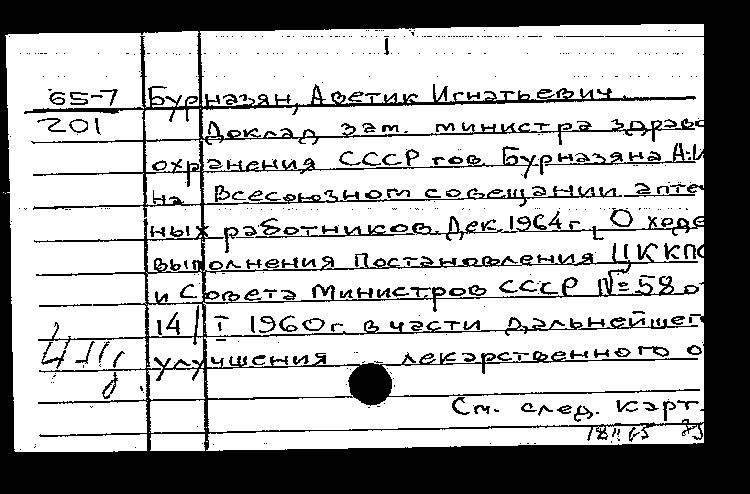 1
65-7 Бурназян, Аветик Игнатьевич.
201 Доклад зам. министра здраво
охранения СССР тов. Бурназяна А.И
на Всесоюзном совещании апте
ных работников. Дек. 1964 г. [О ходе
выполнения Постановления ЦК КПС
и Совета Министров СССР № 58 от
14/I 1960 г. в части дальнейшег
улучшения лекарственного о
См. след. карт.